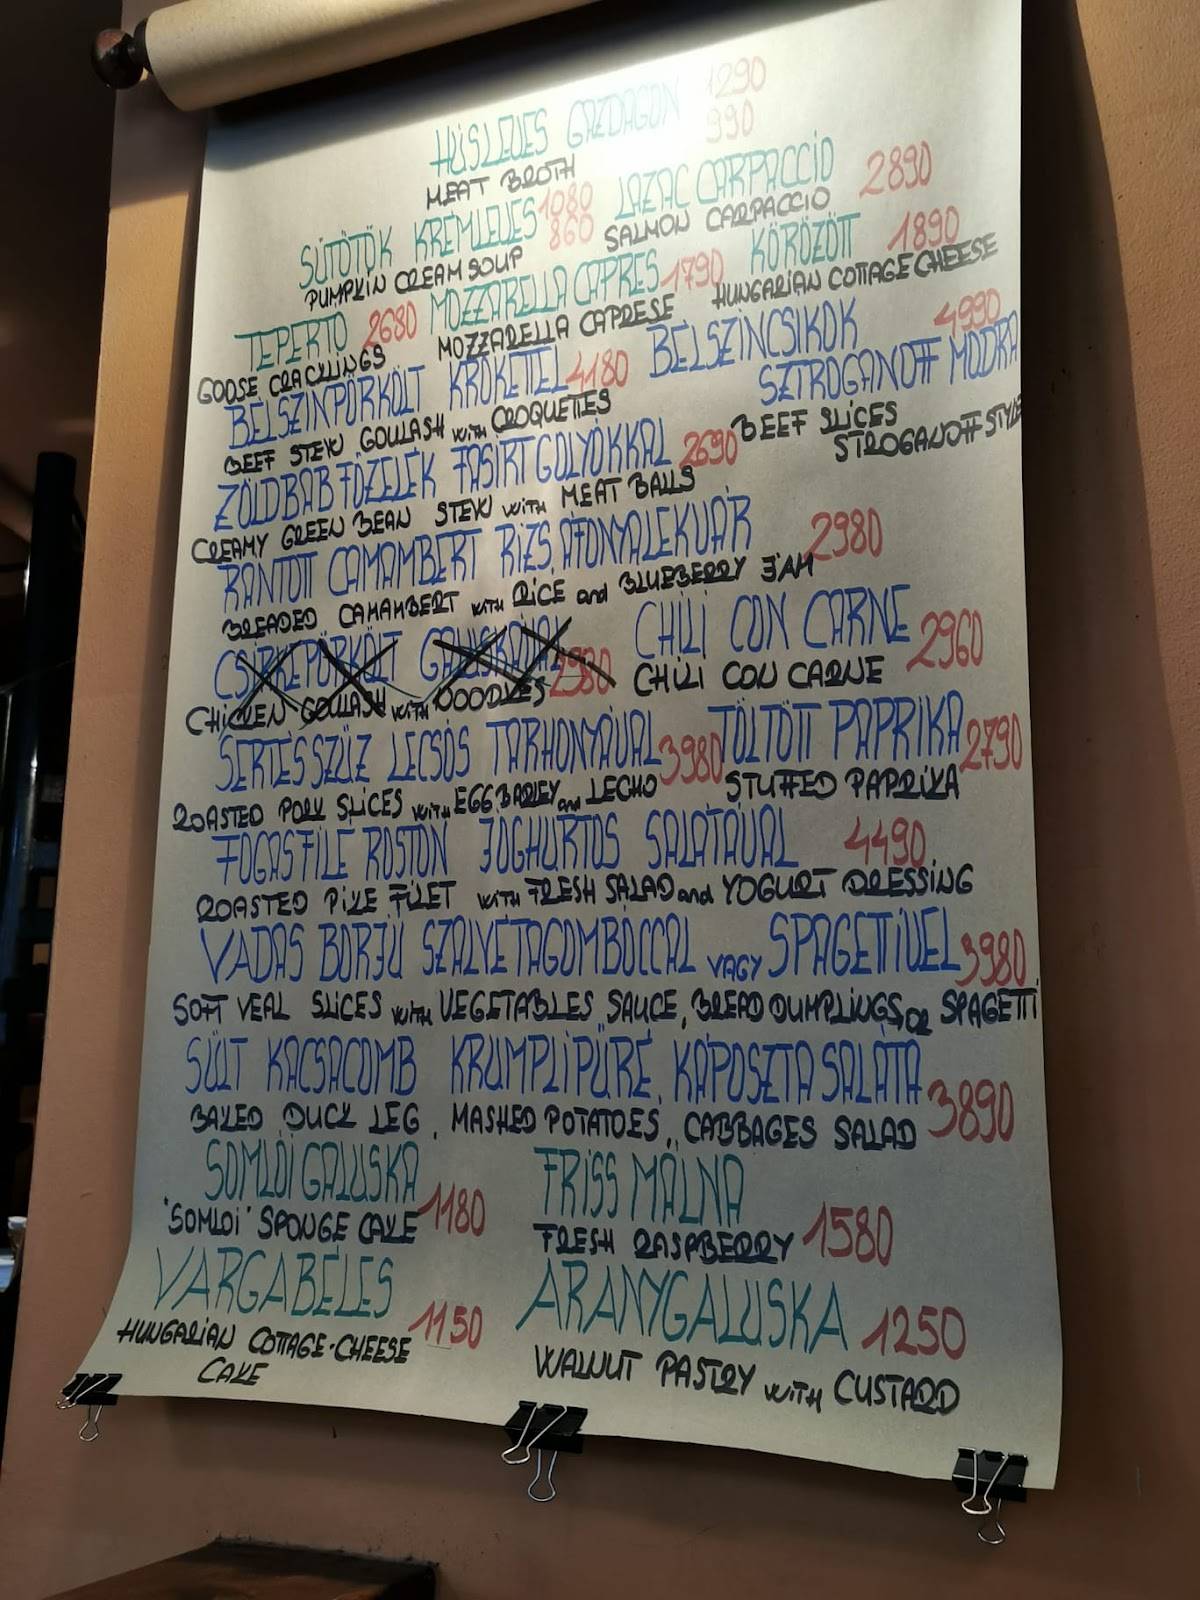 HÚSLEVES GAZDAGON 1290
990
MEAT BROTH
SÜTŐTÖK KRÉMLEVES 1080
860
PUMPKIN CREAM SOUP
LAZAC CARPACCIO 2890
SALMON CARPACCIO
TEPERTŐ 2680
GOOSE CRACKLINGS
MOZZARELLA CAPRES 1790
MOZZARELLA CAPRESE
KÖRÖZÖTT 1890
HUNGARIAN COTTAGE CHEESE
BÉLSZÍNPÖRKÖLT KROKETTEL 4180
BEEF STEW GOULASH with CROQUETTES
BÉLSZÍNCSIKOK 4990
SZTROGANOFF MÓDRA
BEEF SLICES
STROGANOFF STYLE
ZÖLDBABFŐZELÉK FASÍRTGOLYÓKKAL 2690
CREAMY GREEN BEAN STEW with MEAT BALLS
RÁNTOTT CAMAMBERT RIZS, ÁFONYALEKVÁR 2980
BREADED CAMAMBERT with RICE and BLUEBERRY JAM
CSIRKEPÖRKÖLT GALUSKÁVAL 2980
CHICKEN GOULASH with NOODLES
CHILI CON CARNE 2960
CHILI CON CARNE
SERTÉSSZŰZ LECSÓS TARHONYÁVAL 3980
ROASTED PORK SLICES with EGG BARLEY and LECHO
TÖLTÖTT PAPRIKA 2790
STUFFED PAPRIKA
FOGASFILÉ ROSTON JOGHURTOS SALÁTÁVAL 4490
ROASTED PIKE FILET with FRESH SALAD and YOGURT DRESSING
VADAS BORJÚ SZALVÉTAGOMBÓCCAL VAGY SPAGETTIVEL 3980
SOFT VEAL SLICES with VEGETABLES SAUCE, BREAD DUMPLINGS, OR SPAGETTI
SÜLT KACSACOMB KRUMPLIPÜRÉ, KÁPOSZTASALÁTA 3890
BAKED DUCK LEG, MASHED POTATOES, CABBAGES SALAD
SOMLÓI GALUSKA 1180
"SOMLOI" SPONGE CAKE
FRISS MÁLNA 1580
FRESH RASPBERRY
VARGABÉLES 1150
HUNGARIAN COTTAGE-CHEESE
CAKE
ARANYGALUSKA 1250
WALNUT PASTRY with CUSTARD